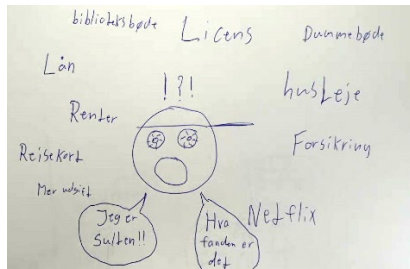 biblioteksbøde
Licens
Dummebøde
Lån
!?!
husleje
Renter
Forsikring
Rejsekort
Mer udgift
Jeg er
sulten!!
Hva
fanden er
det
Netflix